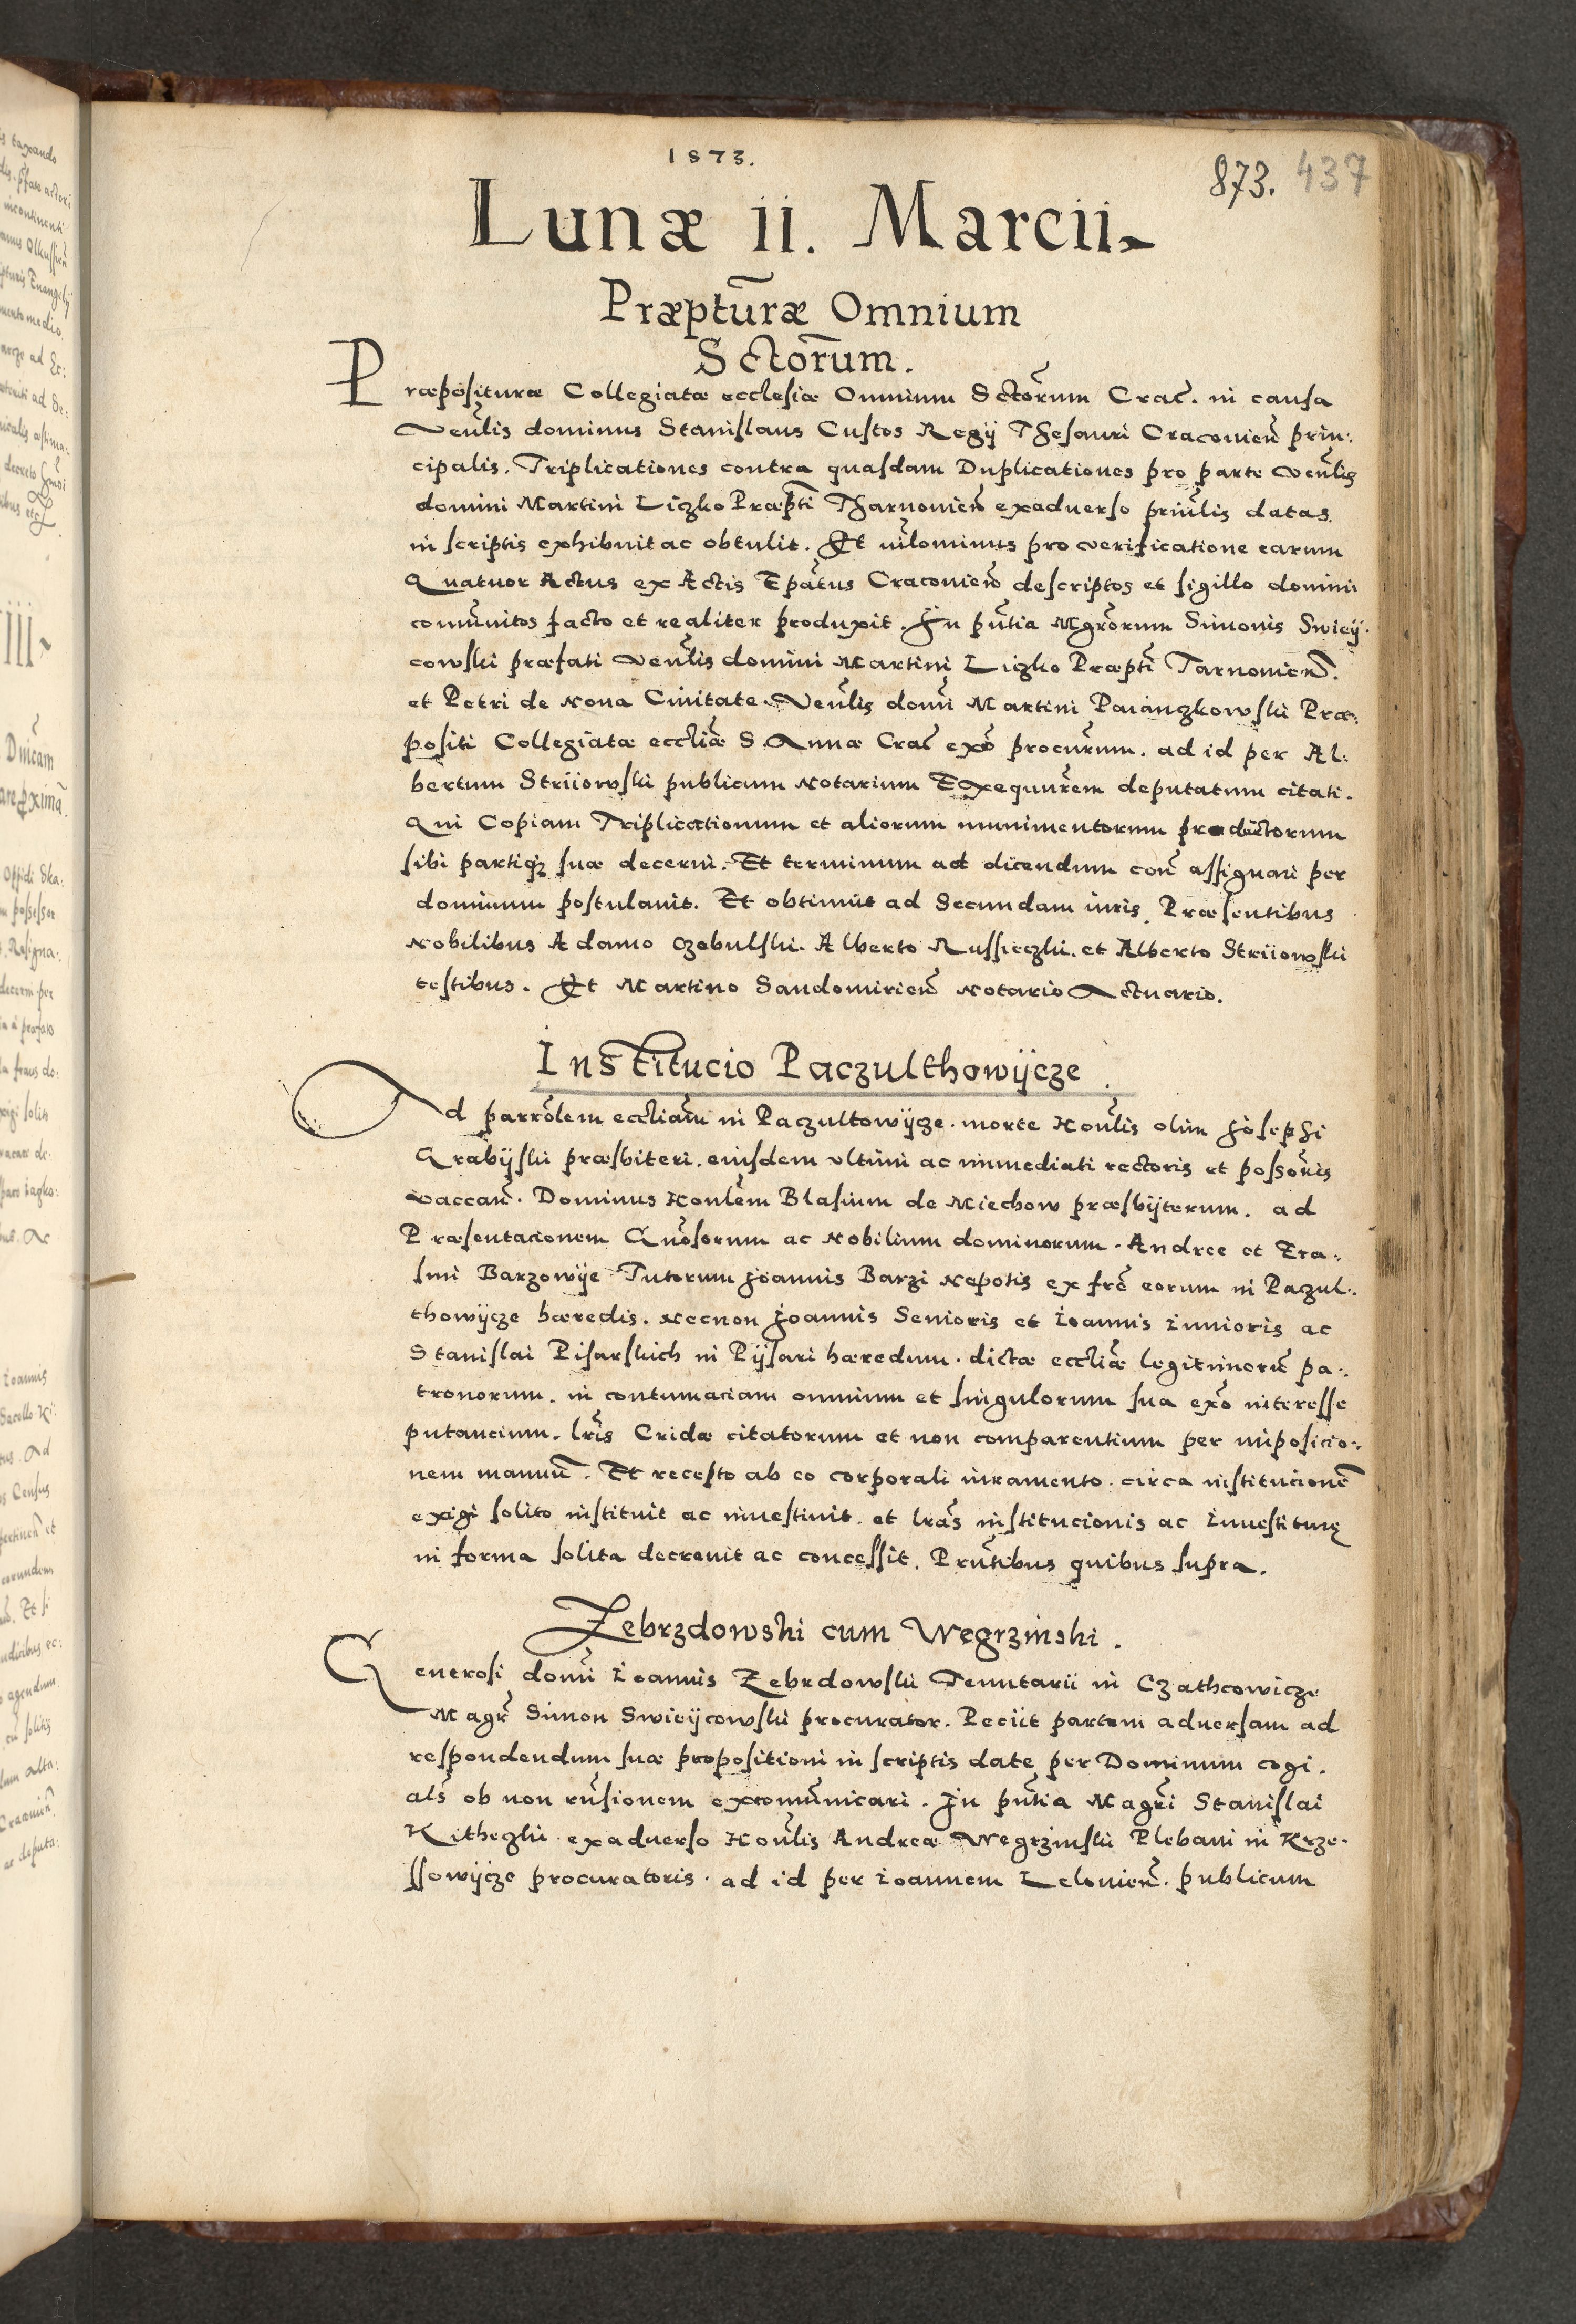 1573.
873. 437
Lunæ ii. Marcii
Præpturæ Omnium
Sctorum.
Præpositura Collegiatæ ecclesiæ Omnium Sctorum Crac. in causa
Venlis dominus Stanislaus Custos Regij Thesauri Cracovien prin:
cipalis. Triplicationes contra quasdam Duplicationes pro parte venlis
domini Martini Liczko Præpti Tharnovien exadverso privlis datas.
in scriptis exhibuit ac obtulit. Et nilominus pro verificatione earum
Quatuor Actus ex Actis Epatus Cracovien descriptos et sigillo domini
comunitos facto et realiter produxit. In pntia Mgrorum Simonis Swieij.
cowski præfati venlis domini Martini Liczko Præpti Tarnovien.
et Petri de Nova Civitate. Venlis domi Martini Paianczkowski Præ:
positi Collegiatæ eccliæ S. Annæ Crac exo procurum. ad id per Al:
bertum Striiowski publicum Notarium Exequurem deputatum citati.
Qui Copiam Triplicationum et aliorum munimentorum productorum
sibi partiq suæ decerni. Et terminum ad dicendum con assignari per
dominum postulavit. Et obtinuit ad Secundam iuris. Præsentibus
Nobilibus Adamo Czebulski. Alberto Russieczki. et Alberto Striiowski
testibus. Et Martino Sandomirien Notario Actuario.
Institucio Paczulthowijcze.
Ad parrolem eccliam in Paczultowijcze. morte Honlis olim Josephi
Grabijski præsbiteri. eiusdem ultimi ac immediati rectoris et possoris
vaccan. Dominus Honlem Blasium de Miechow præsbijterum. ad
Præsentacionem Gnosorum ac Nobilium dominorum. Andree et Era:
smi Barzowije Tutorum Joannis Barzi Nepotis ex fre eorum in Paczul:
thowijcze hæredis. Necnon Joannis Senioris et Ioannis iunioris ac
Stanislai Pisarskich in Pijsari hæredum. dictæ eccliæ legitimoru pa:
tronorum. in contumaciam omnium et singulorum sua exo interesse
putancium. lris Cridæ citatorum et non comparentium per imposicio:
nem manuu. Et recepto ab eo corporali iuramento. circa institucione
exigi solito instituit ac investivit. et lras institucionis ac Investituræ
in forma solita decrevit ac concessit. Prntibus quibus supra.
Zebrzdowski cum Wegrzinski.
Generosi domi Ioannis Zebrdowski Tenutarii in Czathcowicze
Magr Simon Swieijcowski procurator. Peciit partem adversam ad
respondendum suæ propositioni in scriptis date per Dominum cogi.
als ob non rnsionem excomunicari. In pntia Magri Stanislai
Kitheczki exadverso Honlis Andreæ Wegrzinski Plebani in Krze.
ssowijcze procuratoris. ad id per Ioannem Lelovien. publicum